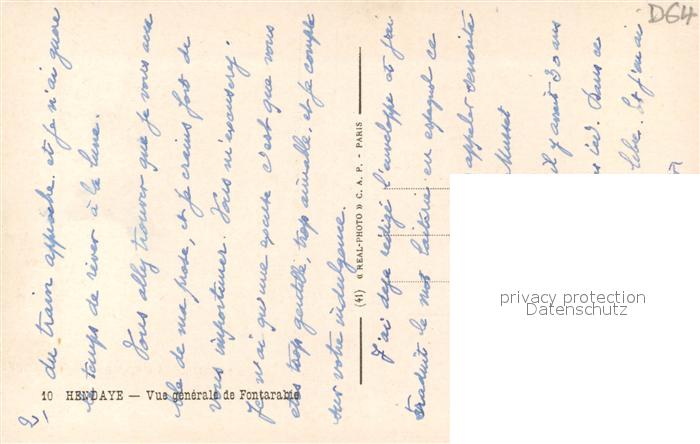 D64
2,
du train approche. et je n'ai guère
le temps de rêver à la lune.
Vous allez trouver que je vous avec
de ma prose, et je crains fort de
vous importuner. Vous m'excuserez.
Je n'ai qu'une excuse c'est que vous
etes trop gentille, trop aimable, et je compte
sur votre indulgence.
J'ai déjà rédigé l'enveloppe et j'ai
traduit le mot laiterie en espagnol ce
appeler
Munst
il y avait 30 ans
ici. Dans ce
libre. Et j'en ai
10 HENDAYE — Vue générale de Fontarabie
(41) « REAL-PHOTO » C. A. P. - PARIS
privacy protection
Datenschutz